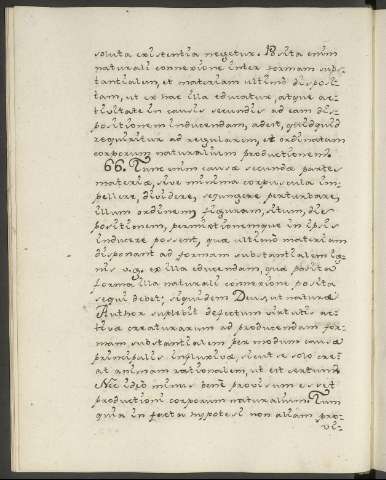 soluta existentia negetur. Posita enim
naturali connexione inter formam subs-
tantialem, et materiam ultimò disposi-
tam, ut ex hac illa educatur, atque ac-
tivitate in causis secundis ad eam dis-
positionem inducendam, adest, quidquid
requiritur ad regularem, et ordinatam
corporum naturalium productionem.
66. Tunc enim causæ secundæ partes
materiæ, sive minima corpuscula im-
pellere, dividere, segungere perturbare,
illum ordinem, figuram, situm, dis-
positionem, permixtionemque in ipsis
inducere possent, quæ ultimò materiam
disponant ad formam substantialem ig-
nis v.g. ex illa educendam, qua posita
forma illa naturali connexione posita
sequi debet; siquidem Deus, ut naturæ
Author suplebit defectum virtutis ac-
tivæ creaturarum ad producendam for-
mam substantialem per modum causæ
principalis influxivæ, sicut se solo cre-
at animam rationalem, ut est certum.
Nec ideo minus bene provisum esset
productioni corporum naturalium. Tum
quia in facta hypotesi non aliam pro-
vi-